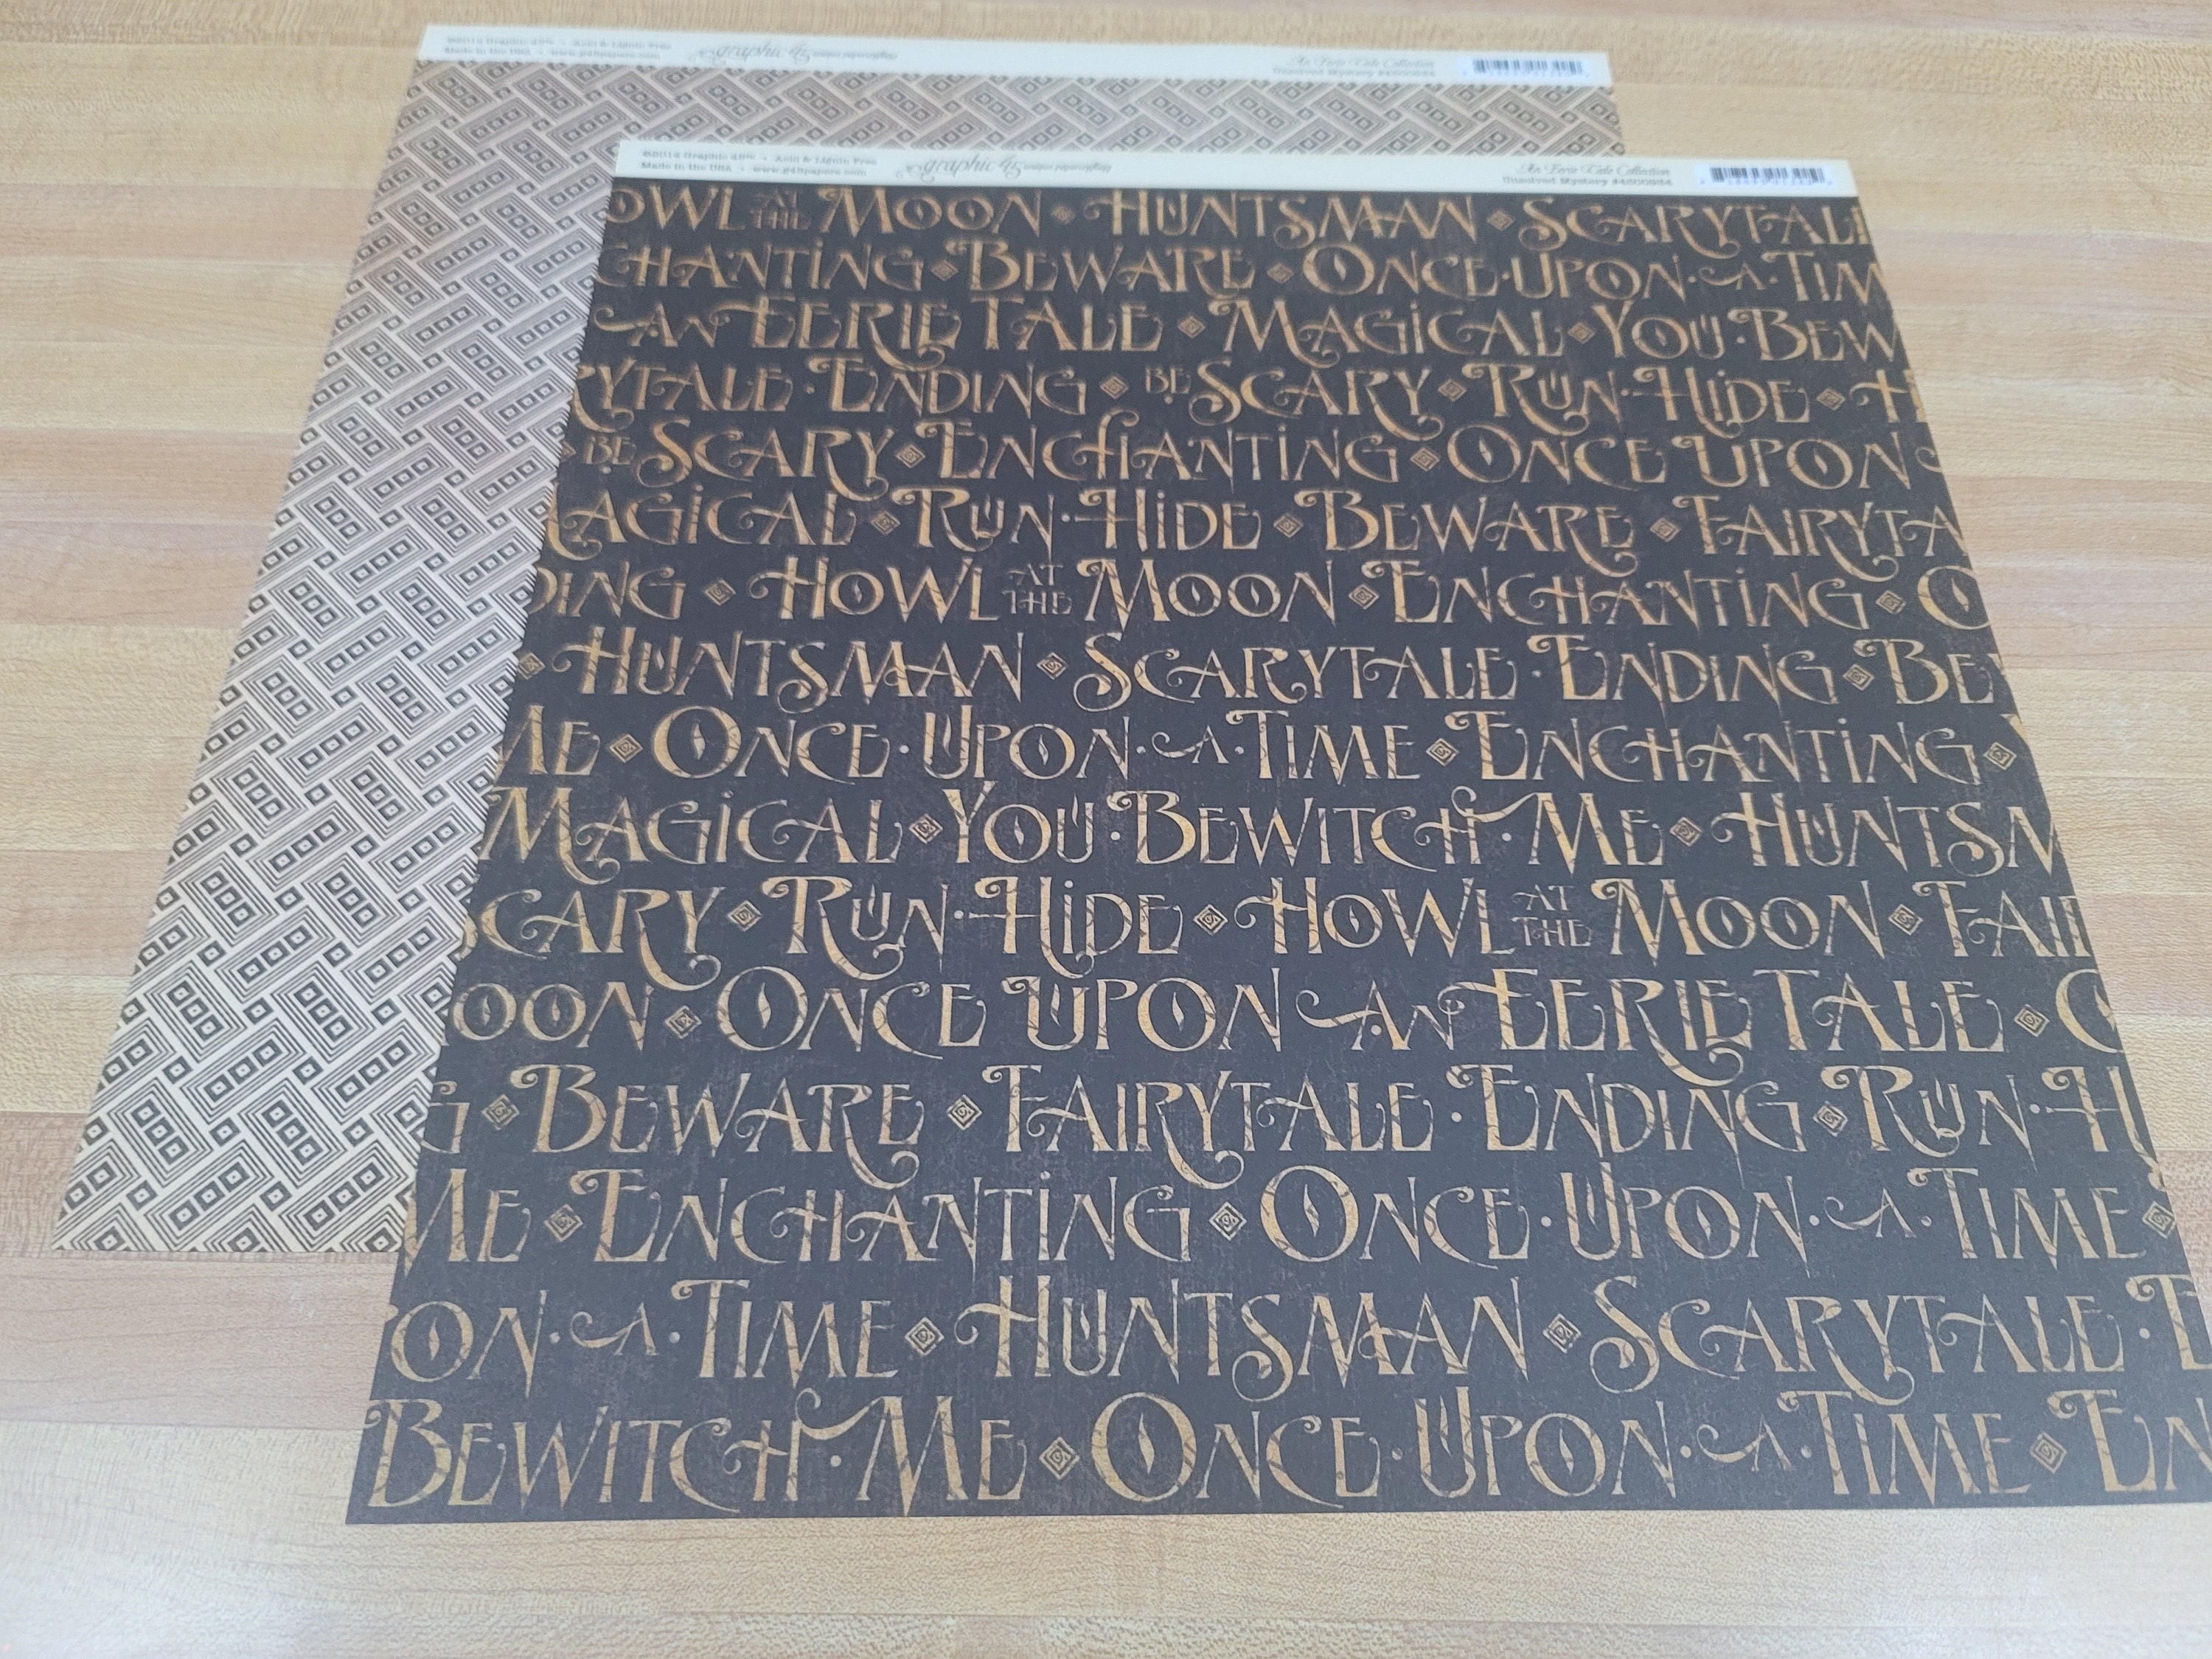 ©2012 Graphic 45™ • Acid & Lignin Free
Made in the USA • www.g45papers.com
graphic 45 unique papercrafting
An Eerie Tale Collection
Unsolved Mystery
©2012 Graphic 45™ • Acid & Lignin Free
Made in the USA • www.g45papers.com
graphic 45 unique papercrafting
An Eerie Tale Collection
Unsolved Mystery
OWL AT THE MOON HUNTSMAN SCARYTALE
CHANTING BEWARE ONCE·UPON·A·TIM
AN EERIE TALE MAGICAL YOU·BEW
RYTALE·ENDING BE SCARY RUN·HIDE H
BE SCARY ENCHANTING ONCE UPON
MAGICAL RUN·HIDE BEWARE FAIRYTA
DING HOWL AT THE MOON ENCHANTING O
HUNTSMAN SCARYTALE·ENDING BEW
ME ONCE·UPON·A·TIME ENCHANTING
MAGICAL YOU·BEWITCH·ME HUNTSM
SCARY RUN·HIDE HOWL AT THE MOON FAI
OON ONCE UPON AN EERIE TALE O
G BEWARE FAIRYTALE·ENDING RUN·H
ME ENCHANTING ONCE·UPON·A·TIME
ON·A·TIME HUNTSMAN SCARYTALE·E
BEWITCH·ME ONCE·UPON·A·TIME EN